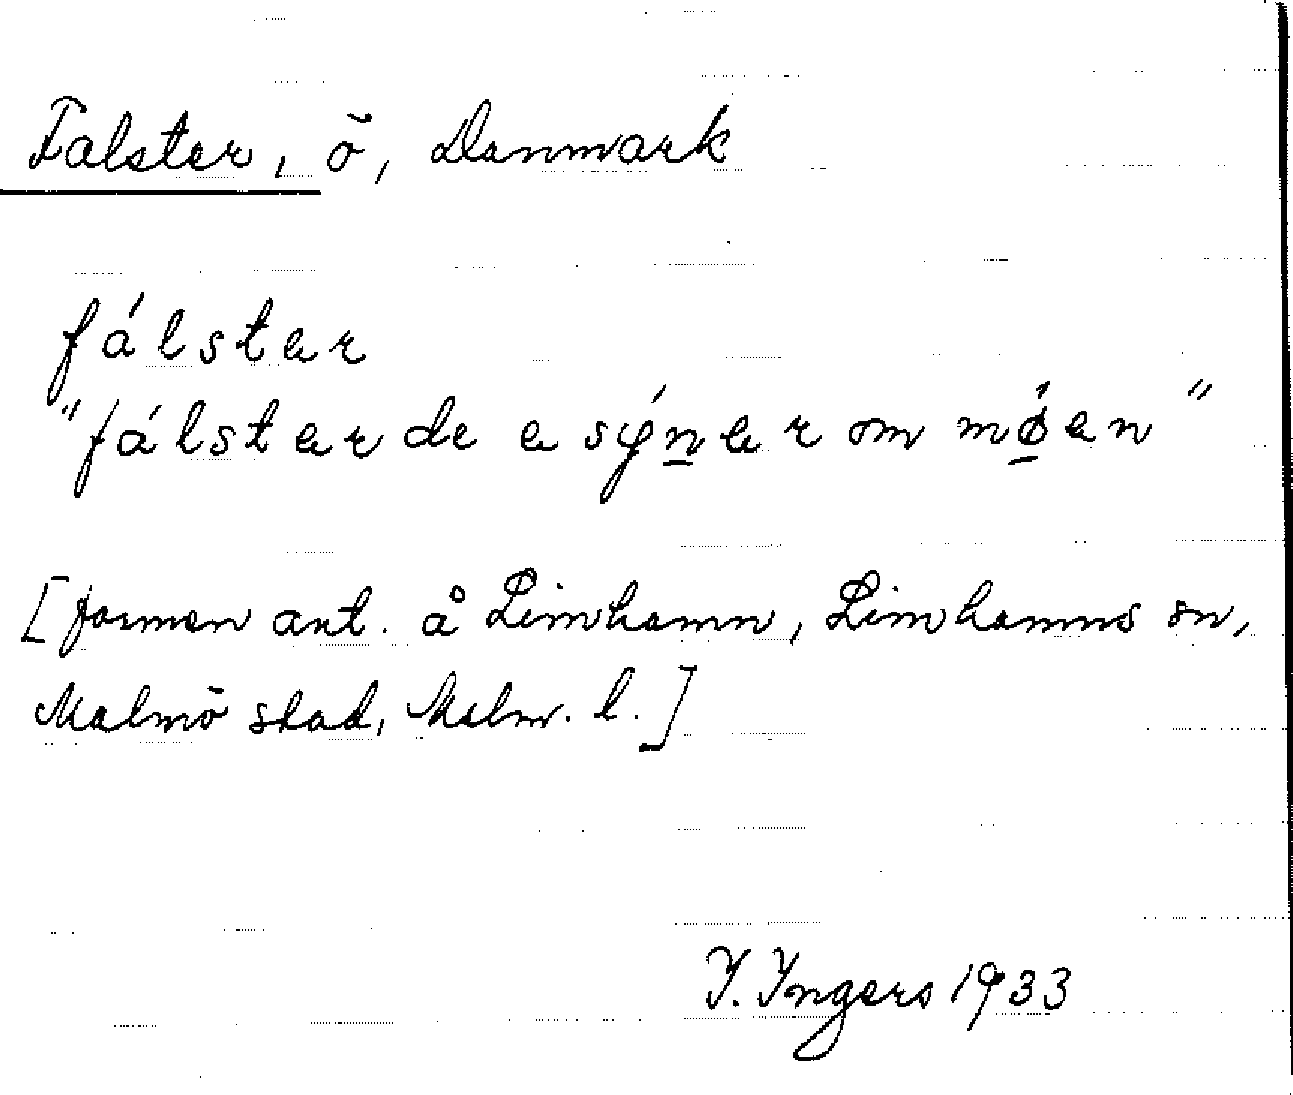 Falster, ö, Danmark
fálster
"fálster de e sýner om mǿen"
[formen ant. å Limhamn, Limhamns sn,
Malmö stad, Malm. l.]
I. Ingers 1933